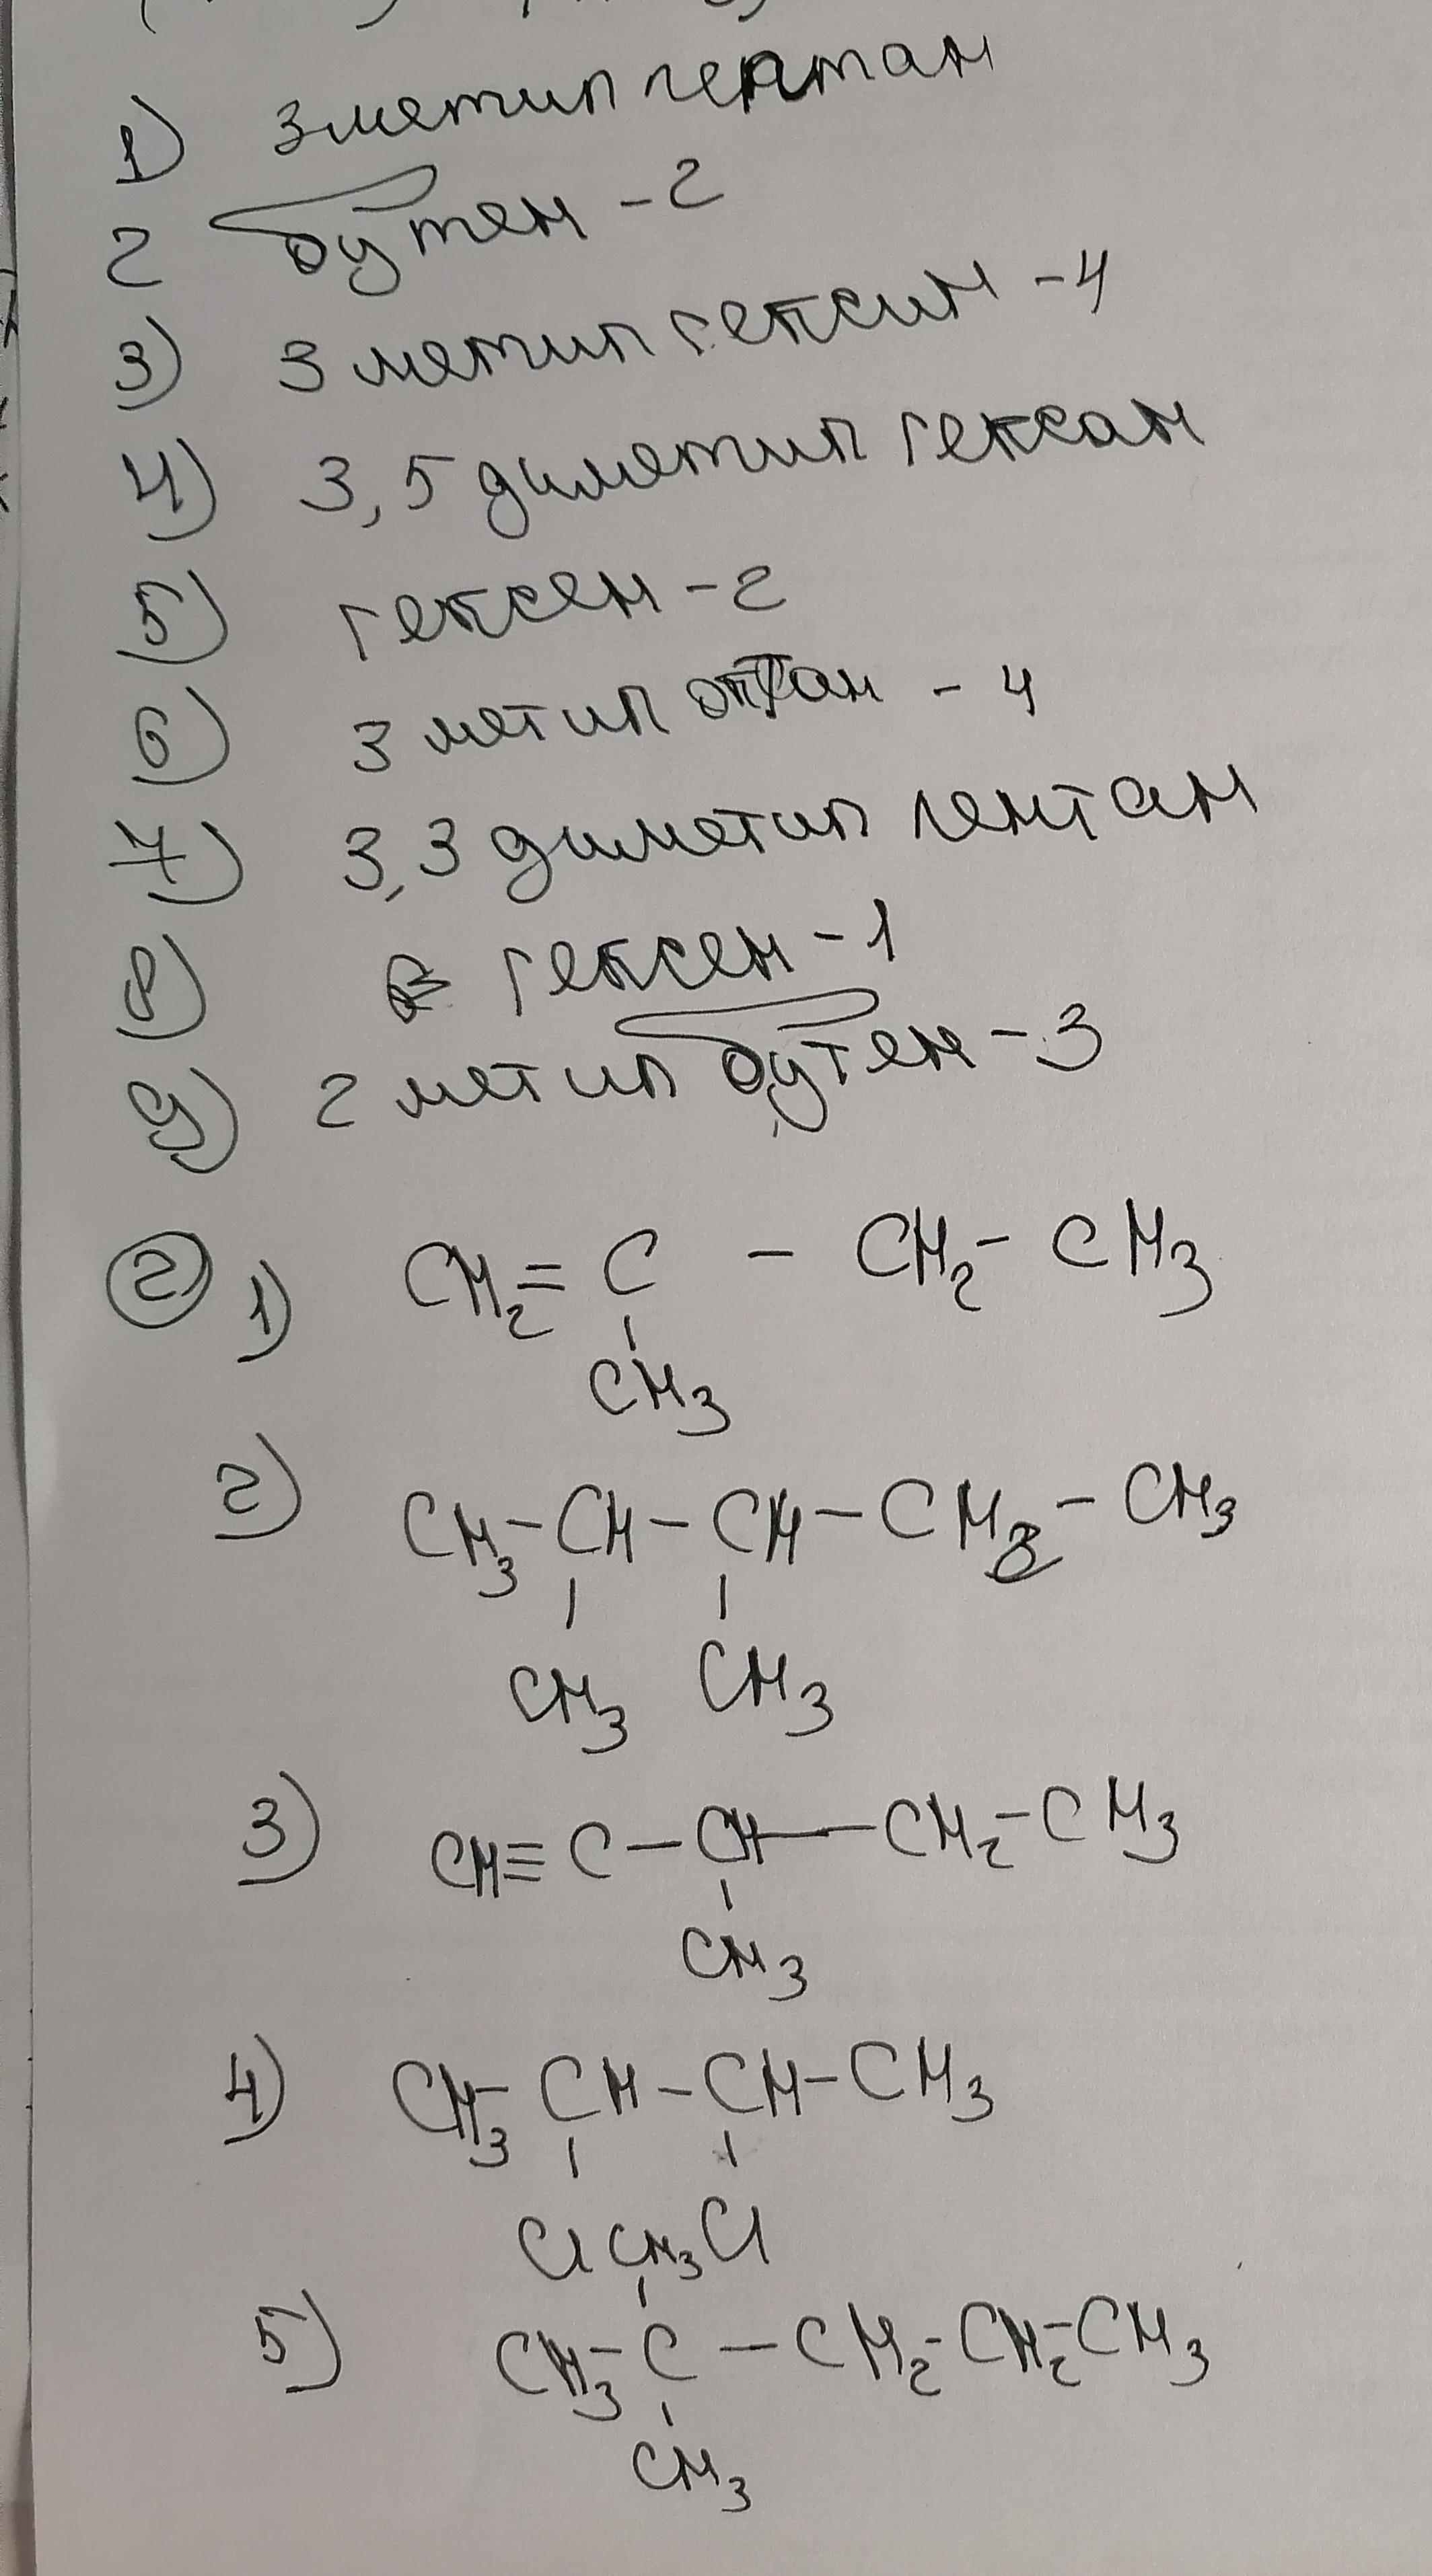 1) 3 метил гептан
2 бутен - 2
3) 3 метил гексин - 4
4) 3,5 диметил гексан
5) гексен - 2
6) 3 метил октан - 4
7) 3,3 диметил пентан
8) гексен - 1
9) 2 метил бутен - 3
② 1) CH₂ = C - CH₂ - CH₃
CH₃
2) CH₃ - CH - CH - CH₂ - CH₃
CH₃ CH₃
3) CH ≡ C - CH - CH₂ - CH₃
CH₃
4) CH₃ - CH - CH - CH₃
Cl Cl
CH₃
5) CH₃ - C - CH₂ - CH₂ - CH₃
CH₃